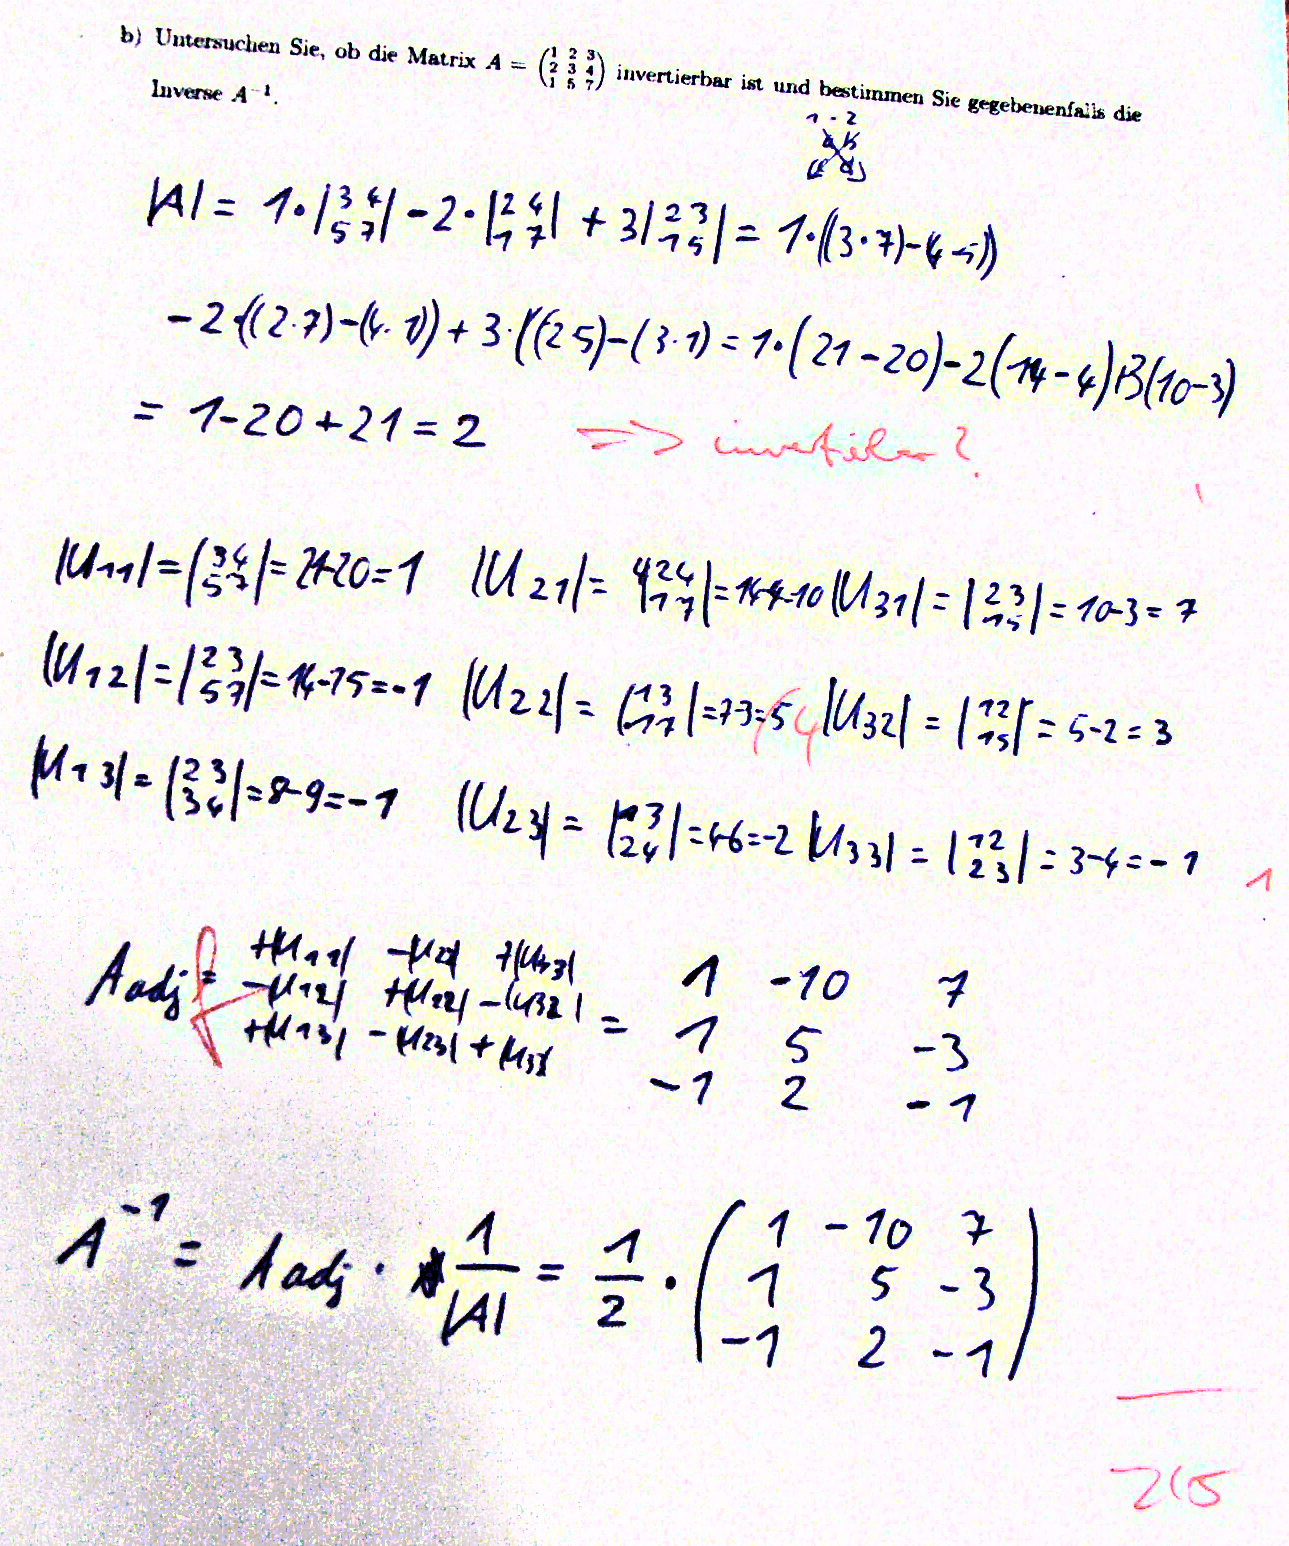 b) Untersuchen Sie, ob die Matrix A = (1 2 3; 2 3 4; 1 5 7) invertierbar ist und bestimmen Sie gegebenenfalls die
Inverse A⁻¹.
1 - 2
a b
c d
|A| = 1·|3 4; 5 7| - 2·|2 4; 1 7| + 3|2 3; 1 5| = 1·((3·7)-(4·5))
-2·((2·7)-(4·1)) + 3·((2 5)-(3·1) = 1·(21-20)-2(14-4)+3(10-3)
= 1-20+21 = 2 => invertierbar?
|U11| = |3 4; 5 7| = 21-20=1 |U21| = |2 4; 1 7| = 14-4=10 |U31| = |2 3; 1 5| = 10-3 = 7
|U12| = |2 3; 5 7| = 14-15=-1 |U22| = |1 3; 1 7| = 7-3=5 4 |U32| = |1 2; 1 5| = 5-2=3
|U13| = |2 3; 3 4| = 8-9=-1 |U23| = |1 3; 2 4| = 4-6=-2 |U33| = |1 2; 2 3| = 3-4=-1 1
A adj = +|U11| -|U21| +|U33| = 1 -10 7
-|U12| +|U22| -|U32| 1 5 -3
+|U13| -|U23| +|U33| -1 2 -1
A⁻¹ = A adj · 1/|A| = 1/2 · (1 -10 7; 1 5 -3; -1 2 -1)
2(5